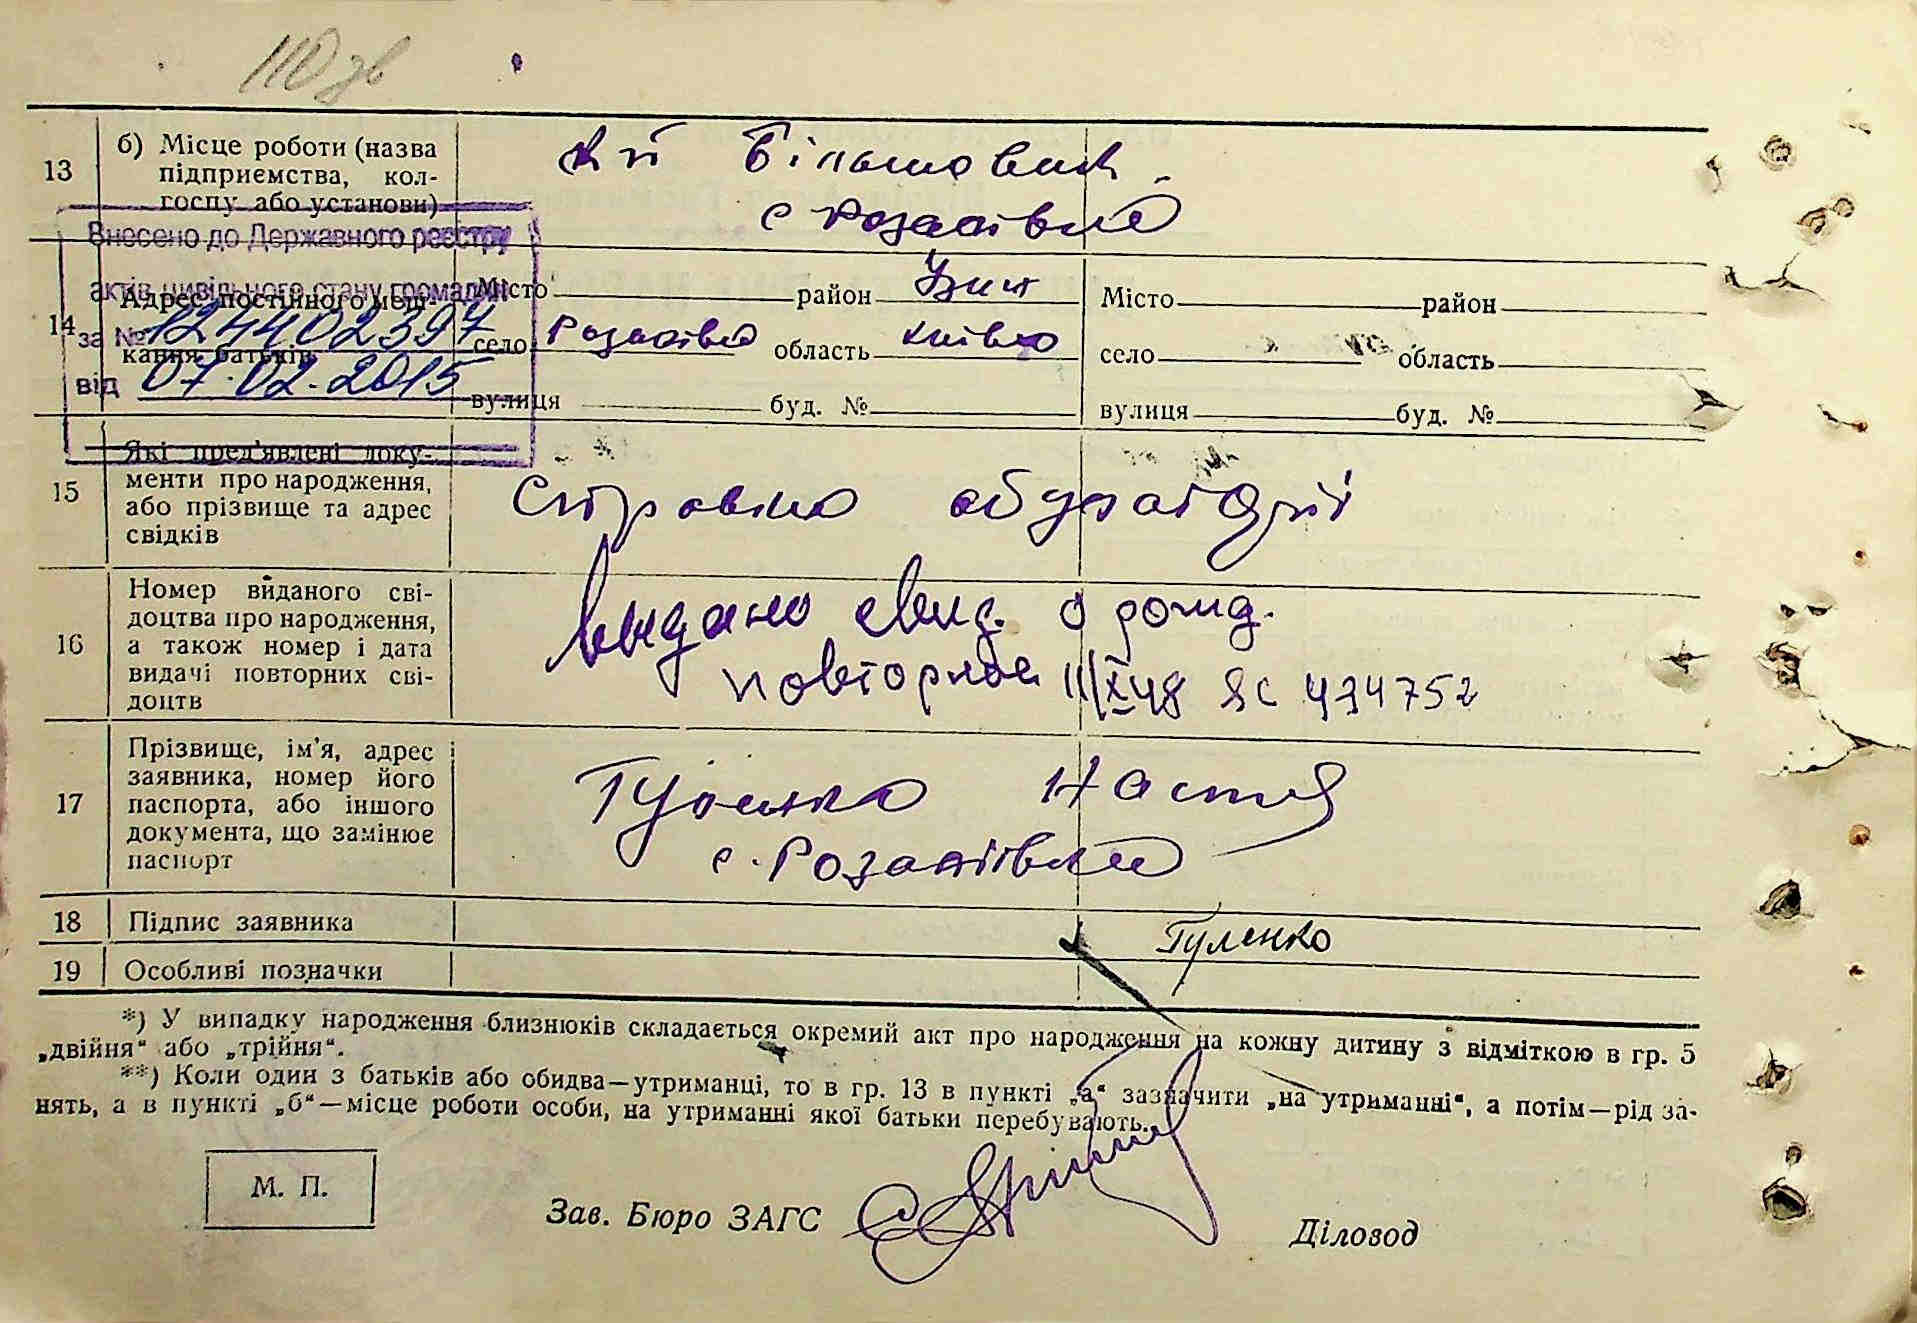 110 зв
13
б) Місце роботи (назва
підприємства, кол-
госпу або установи)
с Розаліївка
Внесено до Державного реєстру
актів цивільного стану громадян
за № 12440239
від 07.02.2015
14
Адрес постійного меш-
кання батьків
Місто район Узин
село Розаліївка область Київсько
вулиця буд. №
Місто район
село область
вулиця буд. №
15
Які пред'явлені доку-
менти про народження,
або прізвище та адрес
свідків
Справка
16
Номер виданого сві-
доцтва про народження,
а також номер і дата
видачі повторних сві-
доцтв
Выдано свид. о рожд.
повторное III/X 48 ЯС 494752
17
Прізвище, ім'я, адрес
заявника, номер його
паспорта, або іншого
документа, що замінює
паспорт
Гуленко Настя
с. Розаліївка
18
Підпис заявника
Гуленко
19
Особливі позначки
*) У випадку народження близнюків складається окремий акт про народження на кожну дитину з відміткою в гр. 5
„двійня“ або „трійня“.
**) Коли один з батьків або обидва—утриманці, то в гр. 13 в пункті „а“ зазначити „на утриманні“, а потім—рід за-
нять, а в пункті „б“—місце роботи особи, на утриманні якої батьки перебувають.
М. П.
Зав. Бюро ЗАГС
Діловод